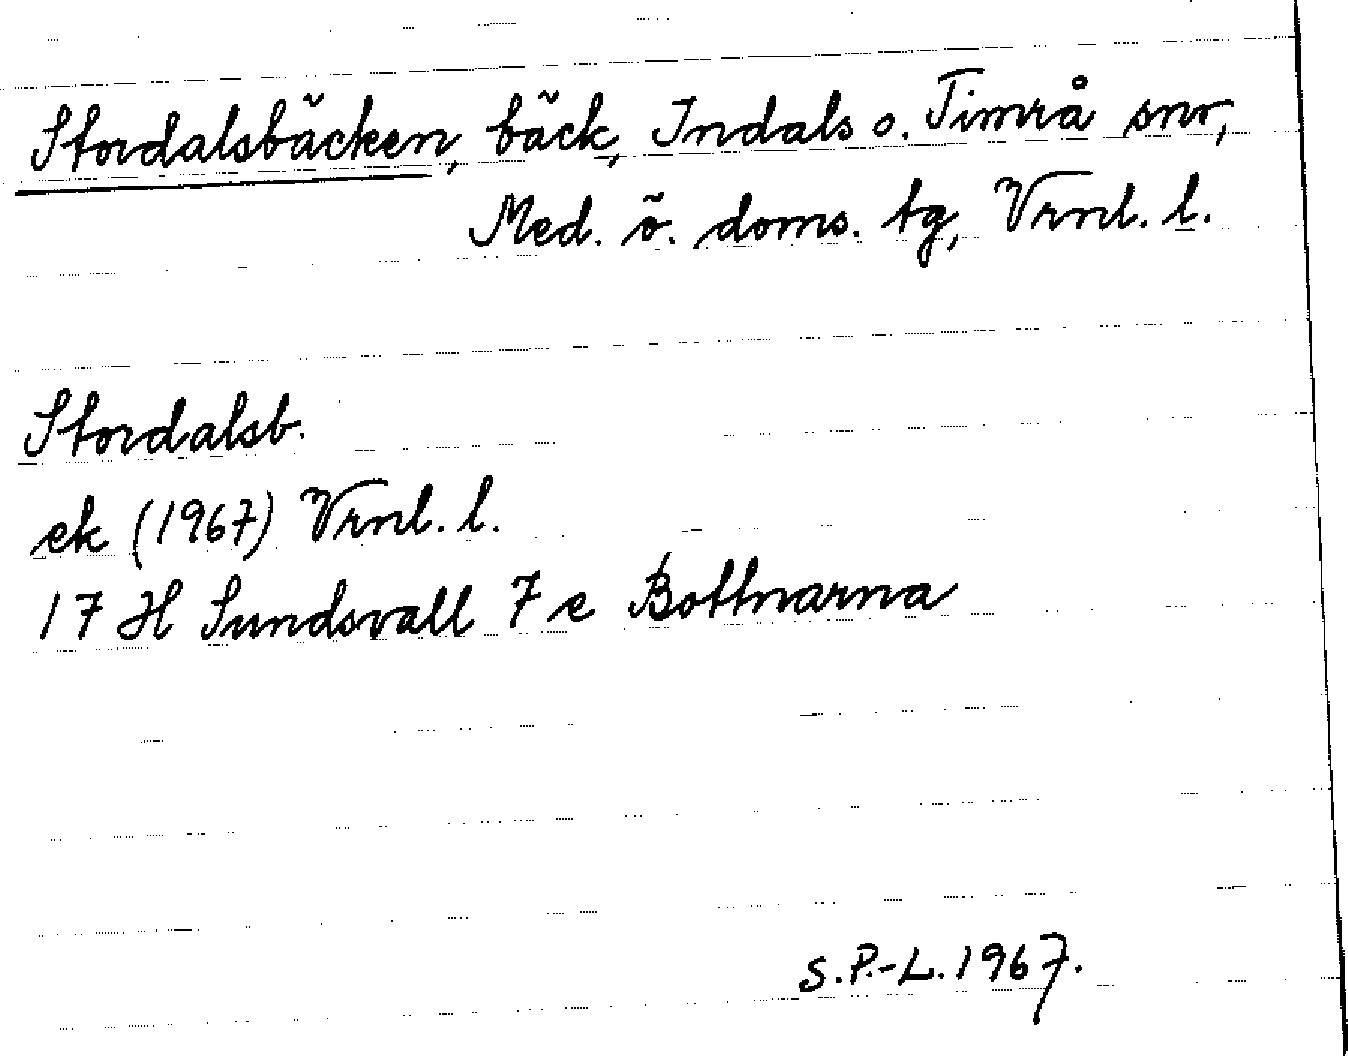 Stordalsbäcken, bäck, Indals o. Timrå snr,
Med. ö. doms. tg, Vrnl. l.
Stordalsb.
ek (1967) Vrnl. l.
17 H Sundsvall 7 e Bottnarna
S.P.-L. 1967.